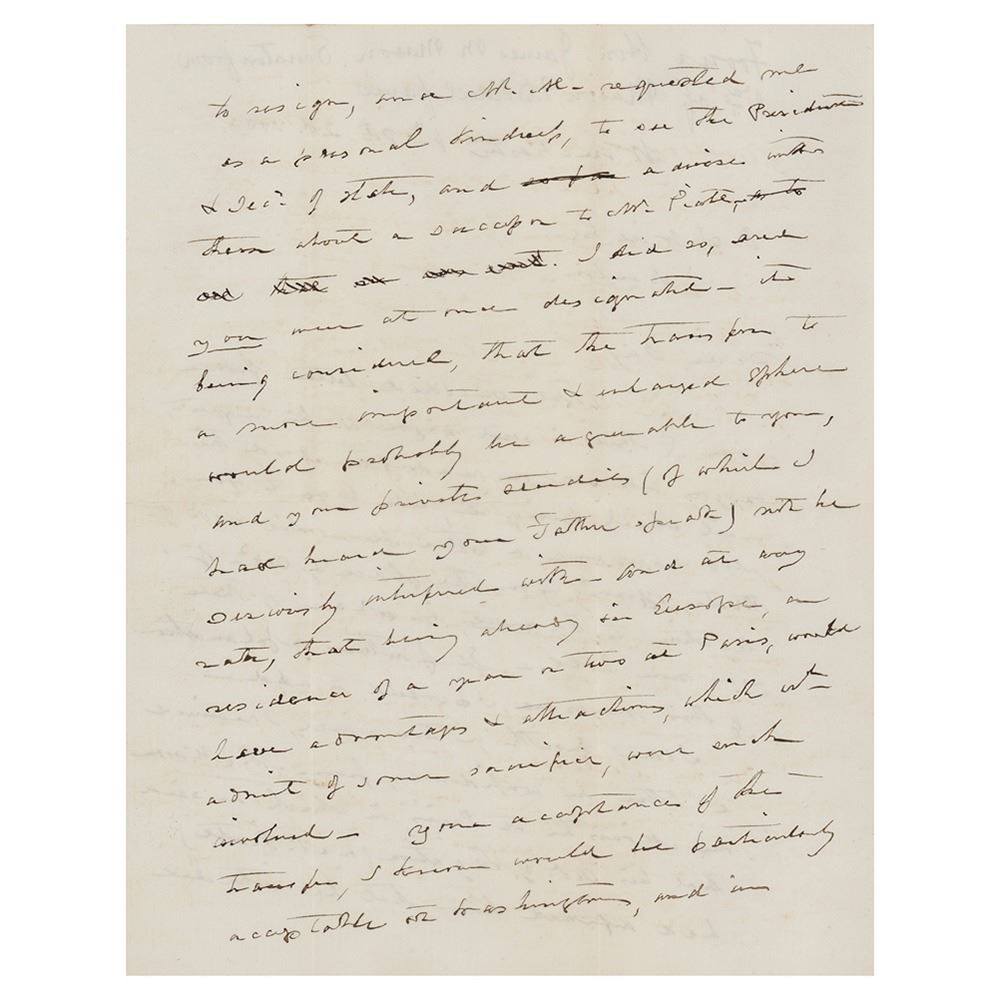 to resign, and Mr. M– requested me
as a personal kindness, to see the President
& Secy. of State, and advise with
them about a successor to Mr. Piatt,
I did so, and
you were at once designated – it
being considered, that the transfer to
a more important & enlarged sphere
would probably be agreeable to you,
and your private studies (of which I
had heard your Father speak) not be
seriously interfered with – and at any
rate, that being already in Europe, a
residence of a year or two at Paris, would
have advantages & attractions, which wd.
admit of some sacrifice, were such
involved – your acceptance of the
transfer, I know would be particularly
acceptable at Washington, and in